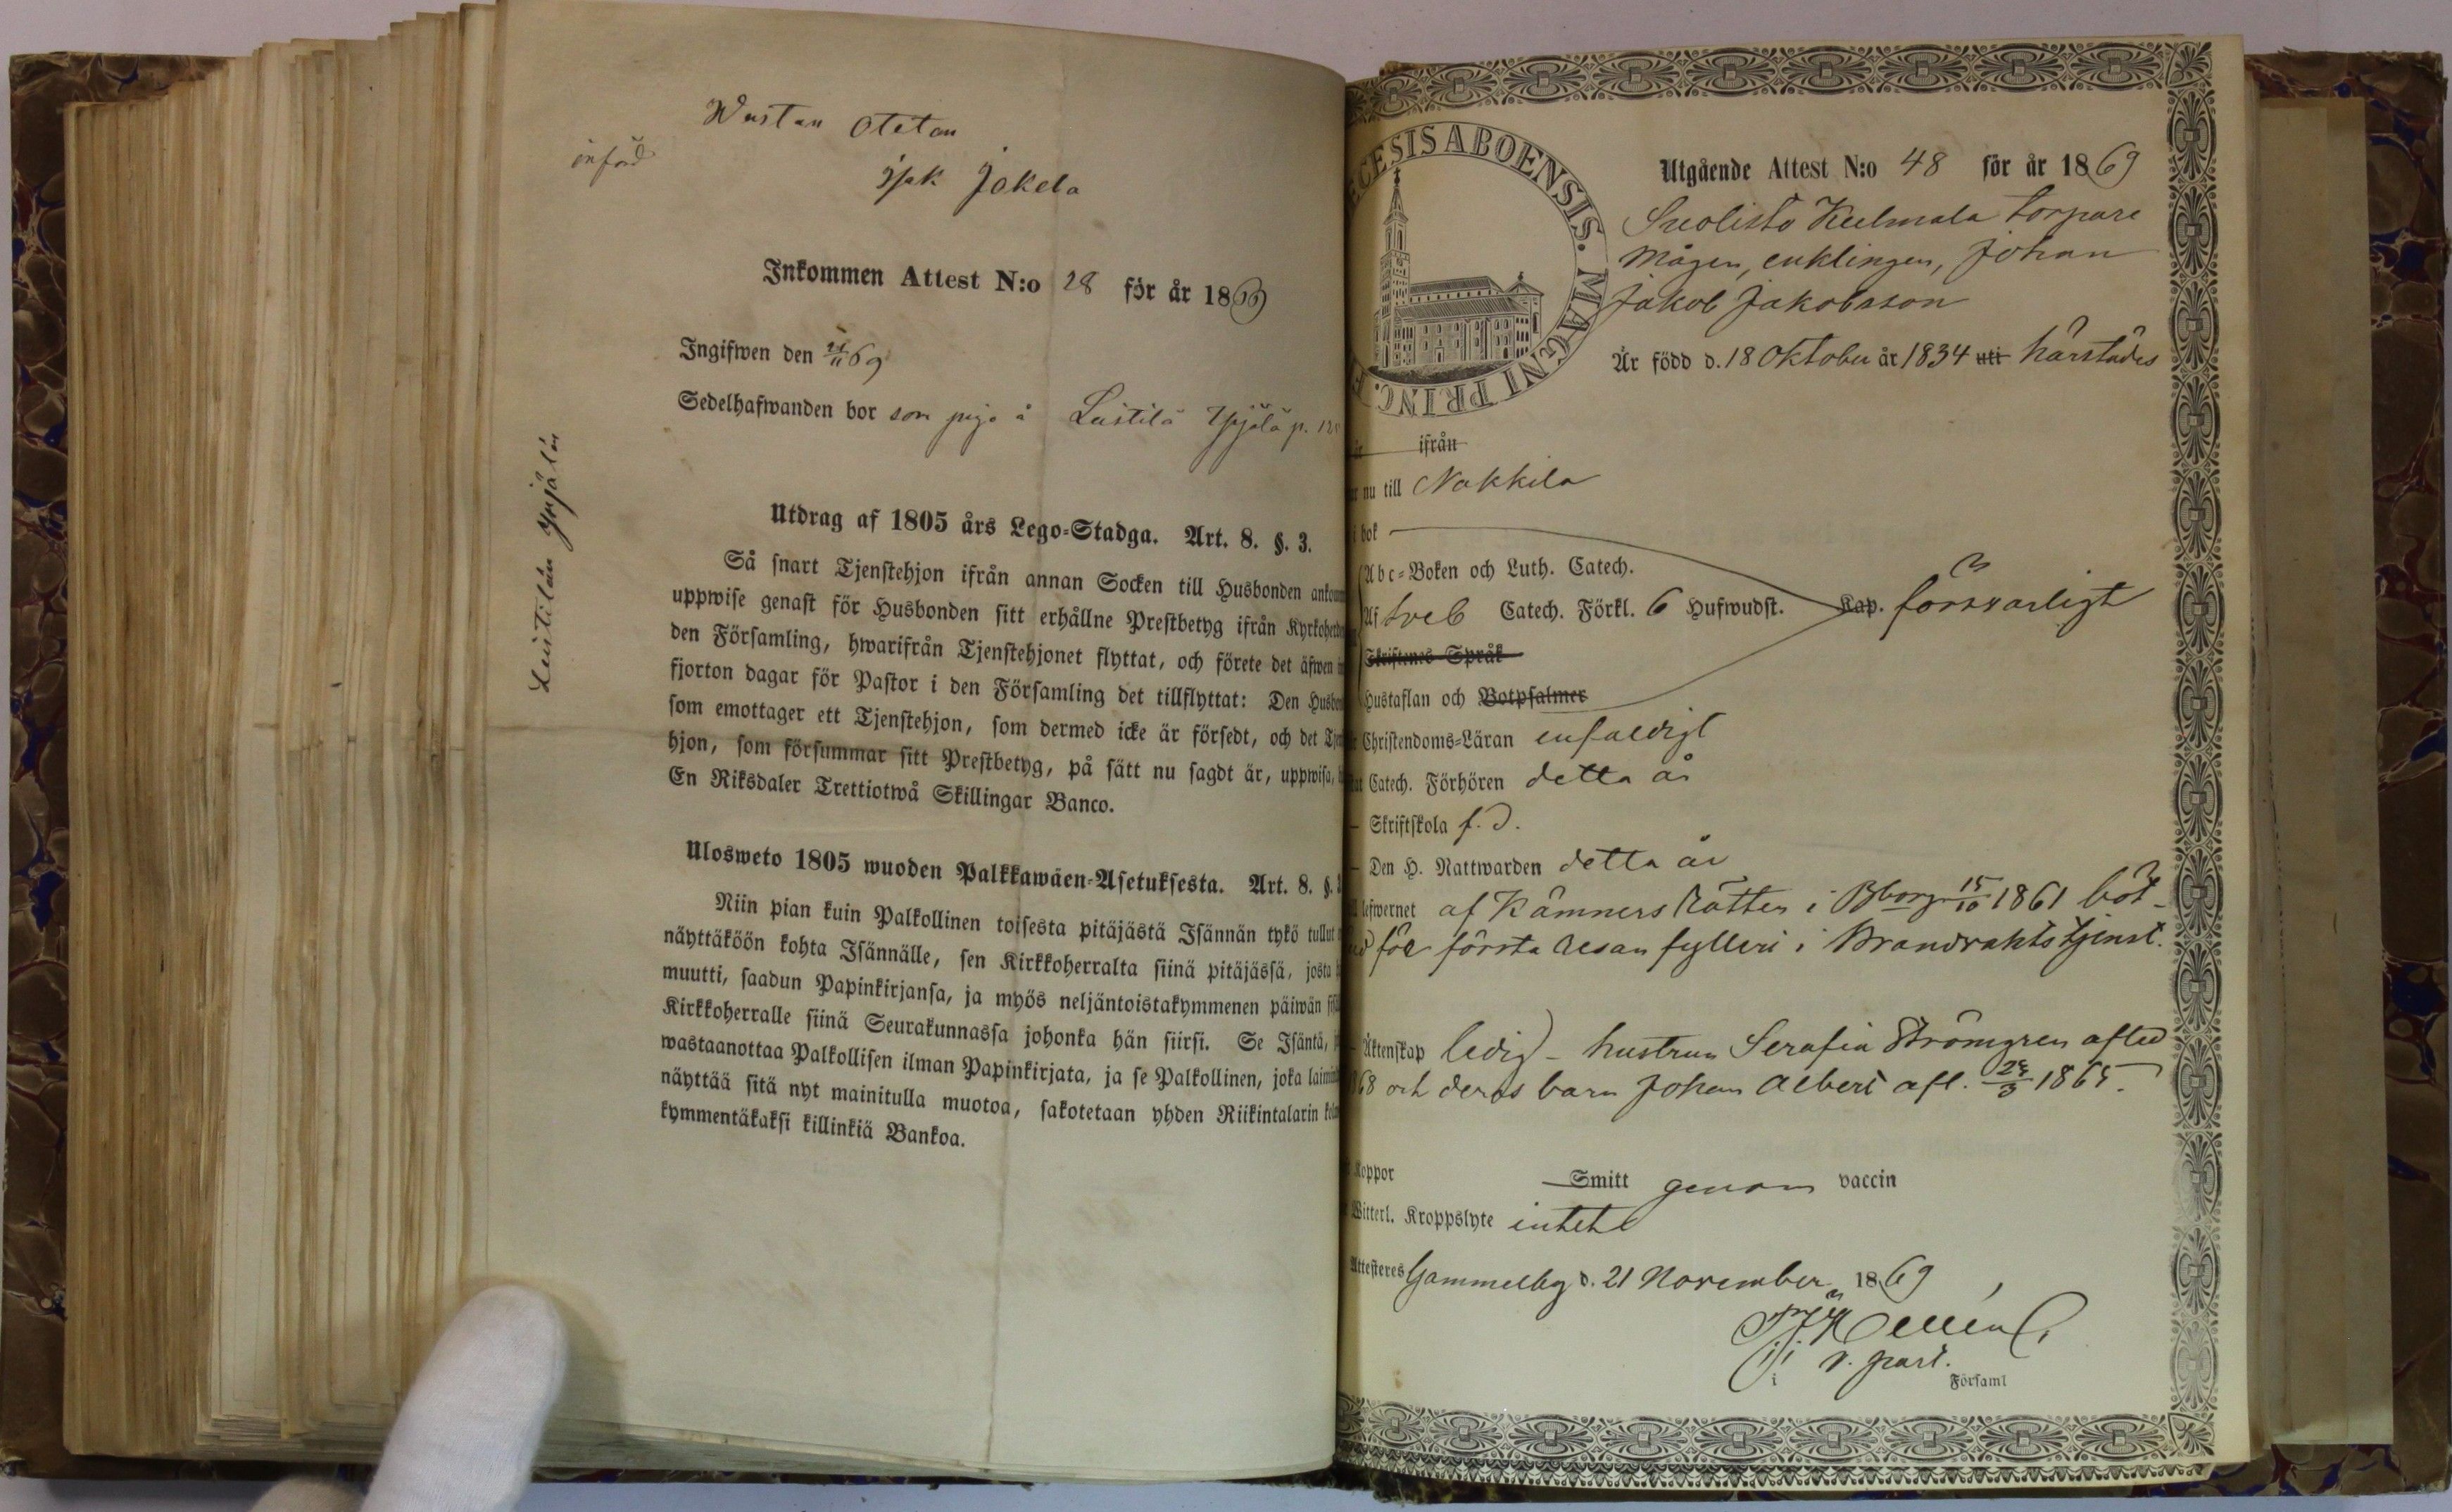 Wastan otetan
införd
Isak Jakela
Inkommen Attest N:o 28 för år 1869
Ingifwen den 21/11 69
Sedelhafwanden bor som piga å Leistilä Yyjälä p. 12
Leistilän Yyjälän
Utdrag af 1805 års Lego-Stadga. Art. 8. §. 3.
Så snart Tjenstehjon ifrån annan Socken till Husbonden ankom
uppwise genast för Husbonden sitt erhållne Prestbetyg ifrån Kyrkoherde
den Församling, hwarifrån Tjenstehjonet flyttat, och förete det äfwen i
fjorton dagar för Pastor i den Församling det tillflyttat: Den Husbon
som emottager ett Tjenstehjon, som dermed icke är försedt, och det Tjen
hjon, som försummar sitt Prestbetyg, på sätt nu sagdt är, uppwisa,
En Riksdaler Trettiotwå Skillingar Banco.
Ulosweto 1805 wuoden Palkkawäen-Asetuksesta. Art. 8. §.
Niin pian kuin Palkollinen toisesta pitäjästä Isännän tykö tullut
näyttäköön kohta Isännälle, sen Kirkkoherralta siinä pitäjässä, josta
muutti, saadun Papinkirjansa, ja myös neljäntoistakymmenen päiwän sis
Kirkkoherralle siinä Seurakunnassa johonka hän siirsi. Se Isäntä,
wastaanottaa Palkollisen ilman Papinkirjata, ja se Palkollinen, joka laimin
näyttää sitä nyt mainitulla muotoa, sakotetaan yhden Riikintalarin kolm
kymmentäkaksi killinkiä Bankoa.
CESIS ABOENSIS. MAGNI PRINC. F
Utgående Attest N:o 48 för år 1869
Suolisto Kulmala torpare
mågen, enklingen, Johan
Jakob Jakobsson
Är född d. 18 Oktober år 1834 uti härstädes
ifrån
nu till Nakkila
i bok
Abc-Boken och Luth. Catech.
Af Sveb Catech. Förkl. 6 Hufwudst. Kap. försvarligt
Skriftenes Språk
Hustaflan och Botpsalmer
Christendoms-Läran enfaldigt
Catech. Förhören detta år
Skriftskola f. d.
Den H. Nattwarden detta år
lefwernet af Kämners Rätten i Bborg 15/10 1861 böt-
för första resan fylleri i Brandvaktstjenst.
Äktenskap ledig - hustrun Serafia Strömgren afled
68 och deras barn Johan Albert afl. 25/3 1865.
Koppor Smitt genom vaccin
Witterl. Kroppslyte intet
Attesteres Gammelby d. 21 November 1869
v. past.
i Församl